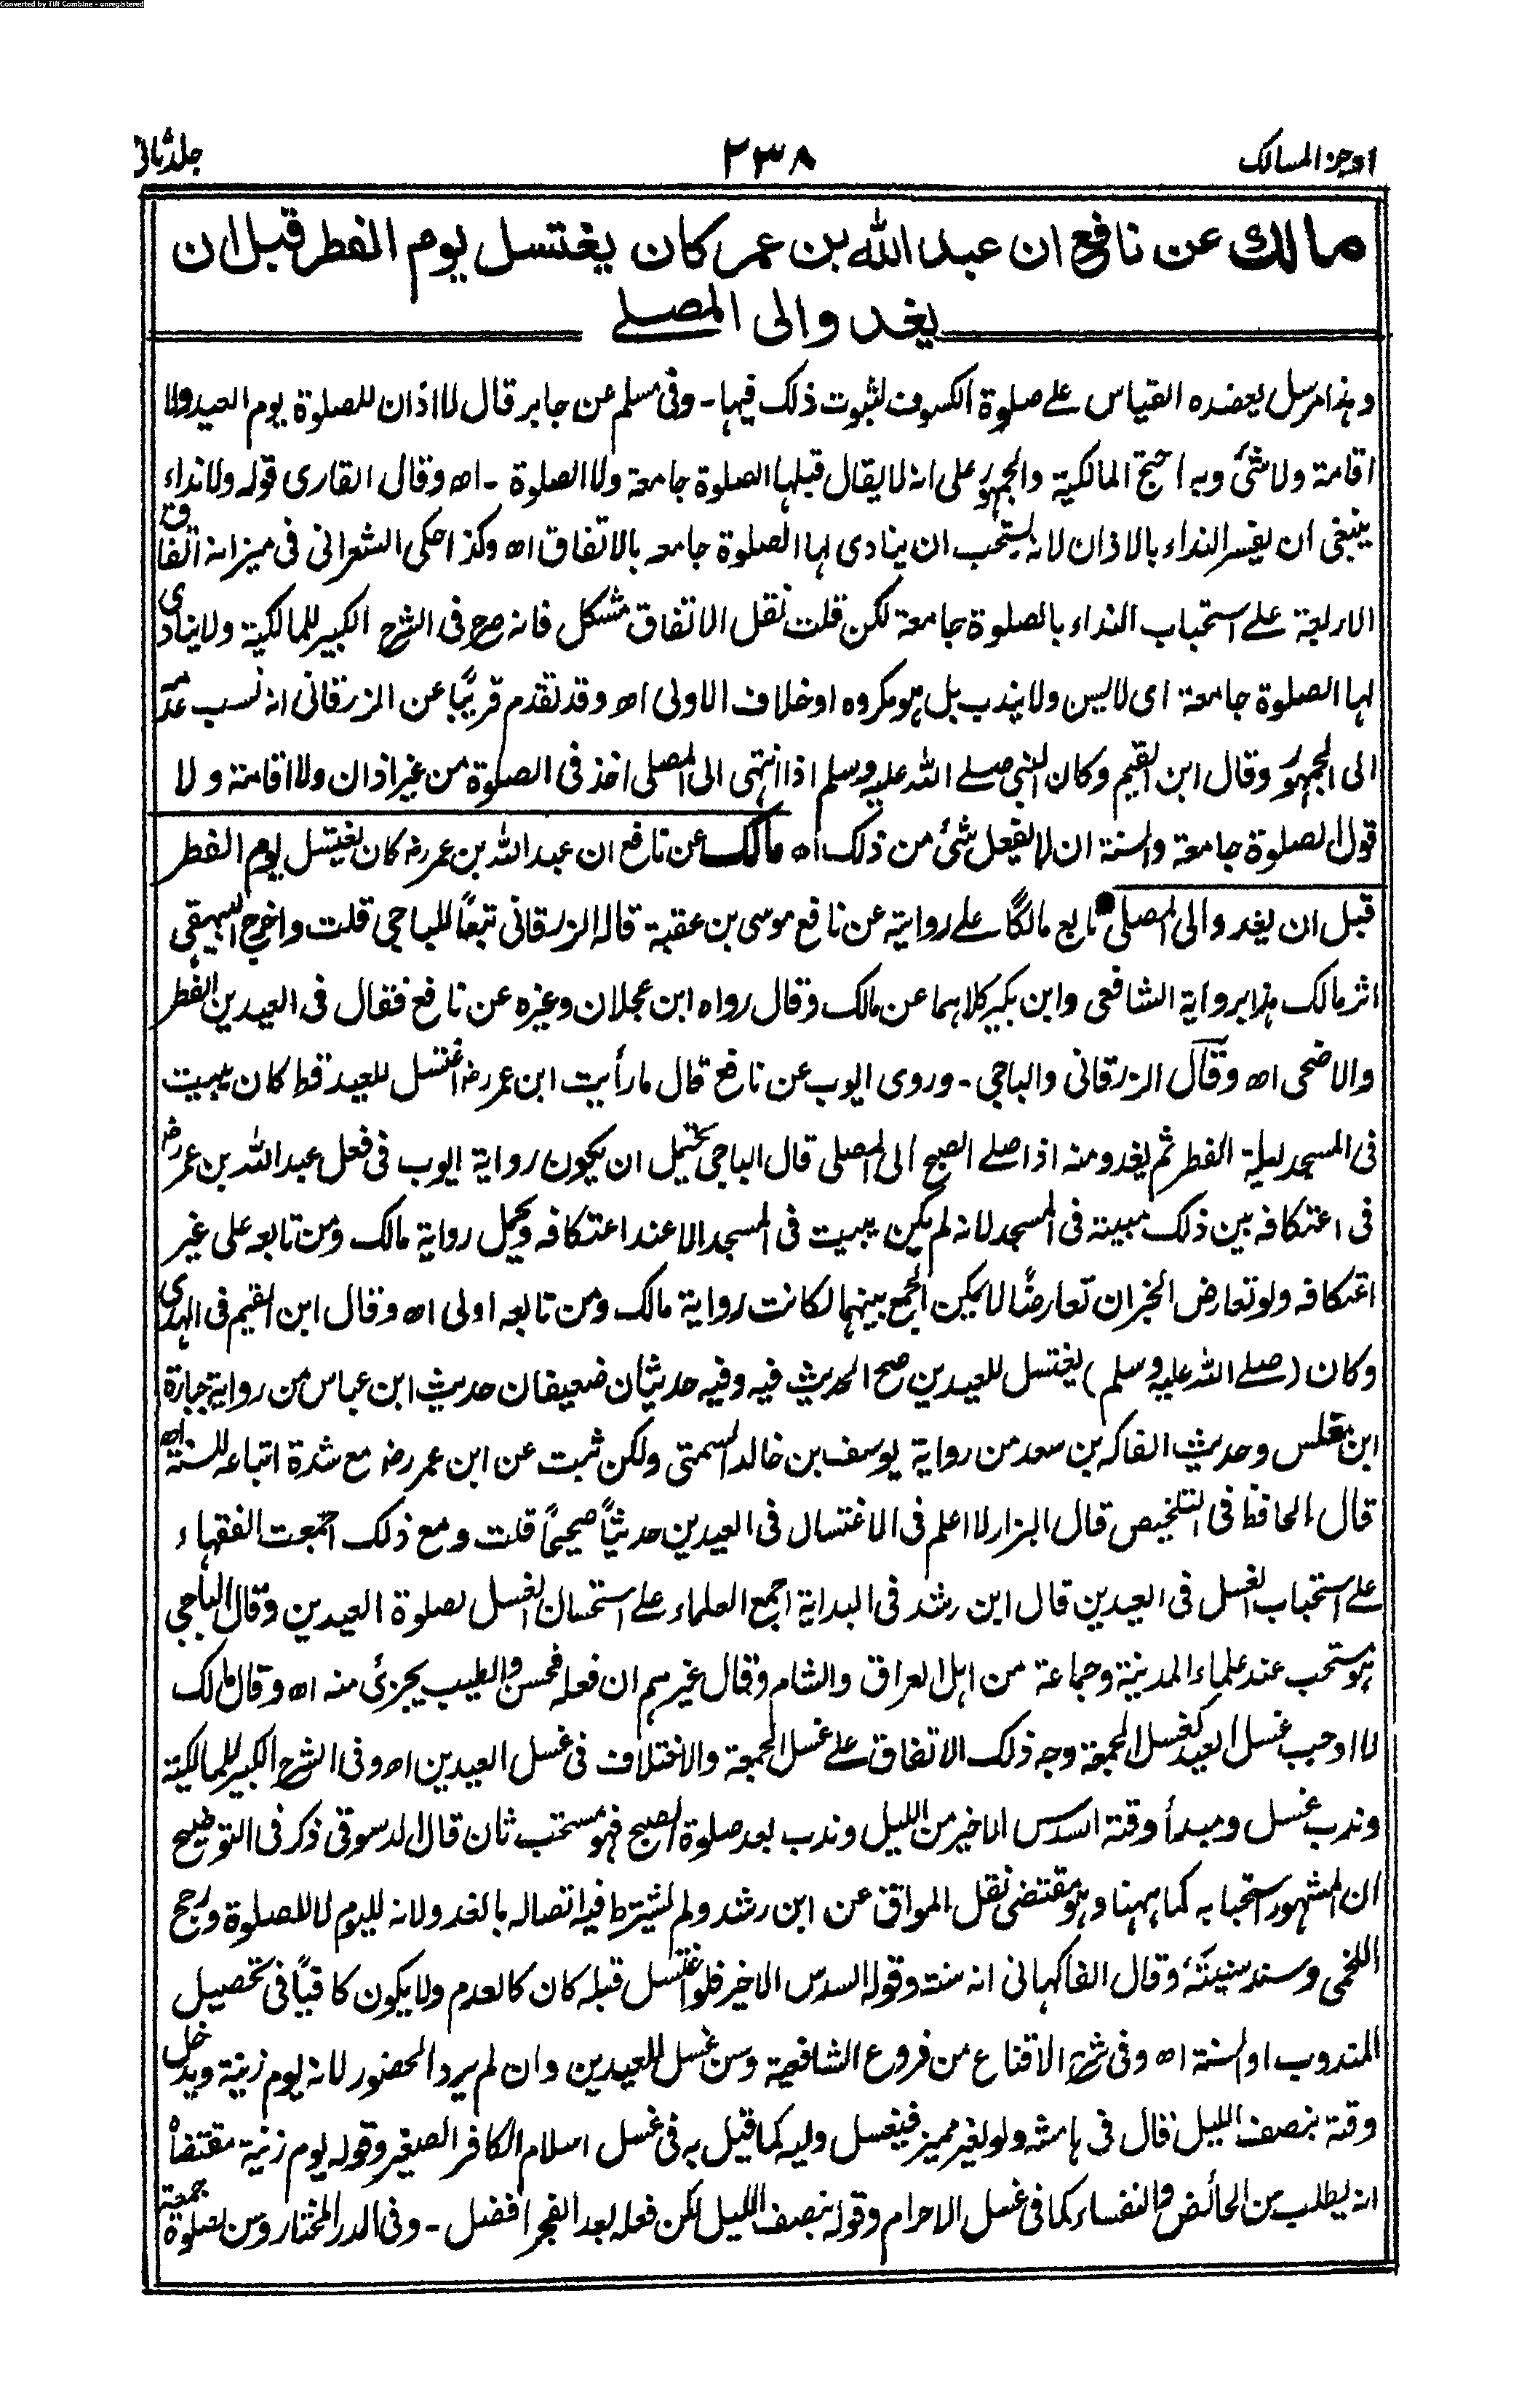 Converted by Tiff Combine - unregistered
اوجز المسالك ٢٣٨ جلد ثانی
مالك عن نافع ان عبد الله بن عمر كان يغتسل يوم الفطر قبل ان
يغدو الى المصلے
وہذا مرسل يعضده القياس علے صلوة الكسوف لثبوت ذلك فيہا - وفی مسلم عن جابر قال لا اذان للصلوة يوم العيد ولا
اقامة ولا شئ وبه احتج المالكية والجمہور علی انه لا يقال قبلہا الصلوة جامعة ولا الصلوة - اھ وقال القاری قوله ولا نداء
ينبغی ان يفسر النداء بالاذان لانه يستحب ان ينادی لہا الصلوة جامعه بالاتفاق اھ وكذا حكی الشعرانی فی ميزانه اتفاق
الاربعة علے استحباب النداء بالصلوة جامعة لكن قلت نقل الاتفاق مشكل فانه صرح فی الشرح الكبير للمالكية ولا ينادی
لہا الصلوة جامعة ای لا يسن ولا يندب بل ہو مكروه او خلاف الاولی اھ وقد تقدم قريبًا عن الزرقانی انه نسب عدمه
الی الجمہور وقال ابن القيم وكان النبی صلے الله عليه وسلم اذا انتہی الی المصلی اخذ فی الصلوة من غير اذان ولا اقامة ولا
قول الصلوة جامعة والسنة ان لا يفعل شئ من ذلك اھ مالك عن نافع ان عبد الله بن عمر رضہ كان يغتسل يوم الفطر
قبل ان يغدو الی المصلی تابع مالكًا علے رواية عن نافع موسی بن عقبة قاله الزرقانی تبعًا للباجی قلت واخرج البيہقی
اثر مالك ہذا برواية الشافعی وابن بكير كلاہما عن مالك وقال رواه ابن عجلان وغيره عن نافع فقال فی العيدين الفطر
والاضحی اھ وقال الزرقانی والباجی - وروی ايوب عن نافع قال ما رأيت ابن عمر رضہ اغتسل للعيد قط كان يبيت
فی المسجد ليلة الفطر ثم يغدو منه اذا صلے الصبح الی المصلی قال الباجی يحتمل ان يكون رواية ايوب فی فعل عبد الله بن عمر رضہ
فی اعتكافه بين ذلك مبيته فی المسجد لانه لم يكن يبيت فی المسجد الا عند اعتكافه ويحمل رواية مالك ومن تابعه علی غير
اعتكافه ولو تعارض الخبران تعارضًا لا يمكن الجمع بينہما لكانت رواية مالك ومن تابعه اولی اھ وقال ابن القيم فی الہدی
وكان (صلے الله عليه وسلم) يغتسل للعيدين صح الحديث فيه وفيه حديثان ضعيفان حديث ابن عباس من رواية جبارة
ابن مغلس وحديث الفاكه بن سعد من رواية يوسف بن خالد السمتی ولكن ثبت عن ابن عمر رضہ مع شدة اتباعه للسنة اھ
قال الحافظ فی التلخيص قال البزار لا اعلم فی الاغتسال فی العيدين حديثًا صحيحًا قلت ومع ذلك اجمعت الفقہاء
علے استحباب الغسل فی العيدين قال ابن رشد فی البداية اجمع العلماء علے استحسان الغسل لصلوة العيدين وقال الباجی
ہو مستحب عند علماء المدينة وجماعة من اہل العراق والشام وقال غيرہم ان فعله فحسن والطيب يجزئ منه اھ وقال مالك
لا اوجب غسل العيد كغسل الجمعة وجه ذلك الاتفاق علے غسل الجمعة والاختلاف فی غسل العيدين اھ وفی الشرح الكبير للمالكية
وندب غسل ومبدأ وقته السدس الاخير من الليل وندب بعد صلوة الصبح فہو مستحب ثان قال الدسوقی ذكر فی التوضيح
ان المشہور استحبابه كما ہہنا وہو مقتضی نقل المواق عن ابن رشد ولم يشترط فيه اتصاله بالغدو لانه لليوم لا للصلوة ورجح
اللخمی وسند سنيته وقال الفاكہانی انه سنة وقوله السدس الاخير فلو اغتسل قبله كان كالعدم ولا يكون كافيًا فی تحصيل
المندوب او السنة اھ وفی شرح الاقناع من فروع الشافعية وسن غسل للعيدين وان لم يرد الحضور لانه يوم زينة ويدخل
وقته بنصف الليل قال فی ہامشه ولو لغير مميز فيغسل وليه كما قيل به فی غسل اسلام الكافر الصغير وقوله يوم زينة مقتضاه
انه يطلب من الحائض والنفساء كما فی غسل الاحرام وقوله بنصف الليل لكن فعله بعد الفجر افضل - وفی الدر المختار وسن لصلوة جمعة